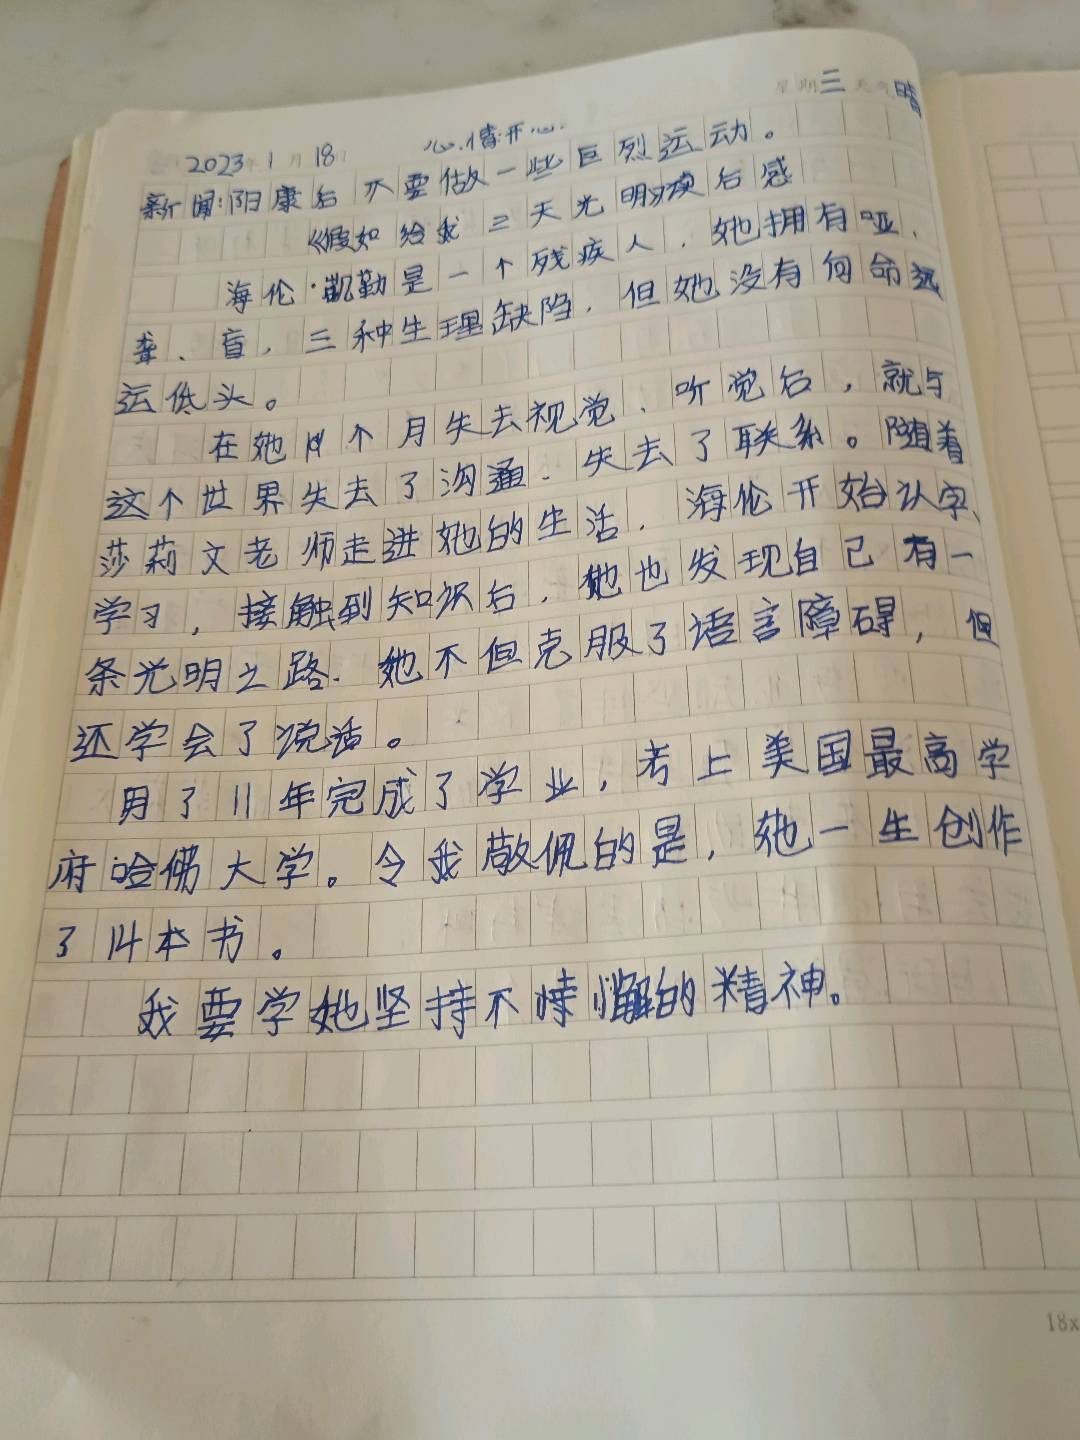 星期三 天气晴
2023年1月18日 心情:开心.
新闻:阳康后不要做一些巨烈运动。
《假如给我三天光明》读后感
海伦·凯勒是一个残疾人，她拥有哑、
聋、盲，三种生理缺陷，但她没有向命远
运低头。
在她19个月失去视觉、听觉后，就与
这个世界失去了沟通、失去了联系。随着
莎莉文老师走进她的生活，海伦开始认字、
学习，接触到知识后，她也发现自己有一
条光明之路.她不但克服了语言障碍，但
还学会了说话。
用了11年完成了学业，考上美国最高学
府哈佛大学。令我敬佩的是，她一生创作
了14本书。
我要学她坚持不懈的精神。
18x